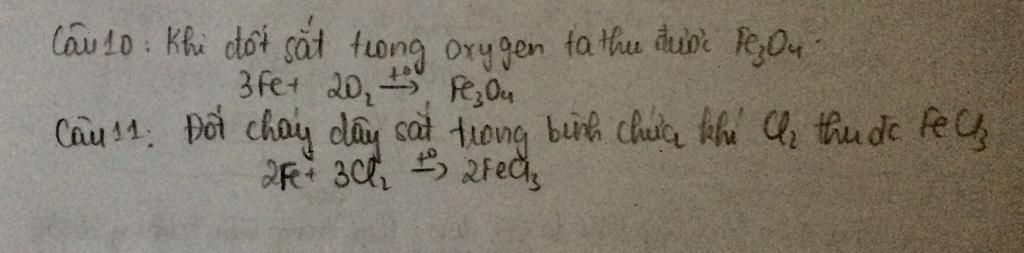 Câu 10: Khi đốt sắt trong oxygen ta thu được Fe₃O₄.
3Fe + 2O₂ →(t°) Fe₃O₄
Câu 11: Đốt cháy dây sắt trong bình chứa khí Cl₂ thu đc FeCl₃
2Fe + 3Cl₂ →(t°) 2FeCl₃